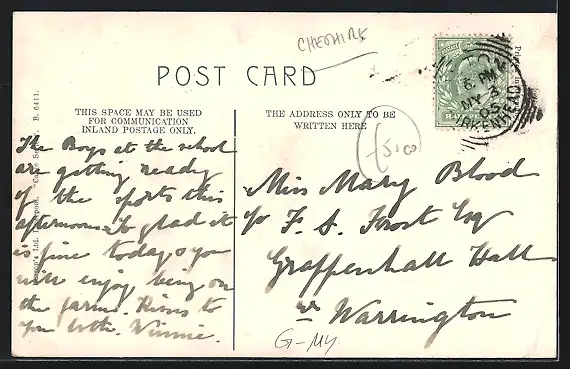 CHESHIRE
POST CARD
THIS SPACE MAY BE USED
FOR COMMUNICATION
INLAND POSTAGE ONLY.
THE ADDRESS ONLY TO BE
WRITTEN HERE
The Boys at the school
are getting ready
for the sports this
afternoon. So glad it
is fine today, you
will enjoy being on
the farm. Kisses to
you both. Winnie.
Miss Mary Blood
c/o F. S. Frost Esq
Grappenhall Hall
nr Warrington
G-MY
HA
6. PM
MY 3
05
BIRKENHEAD
B. 6411.